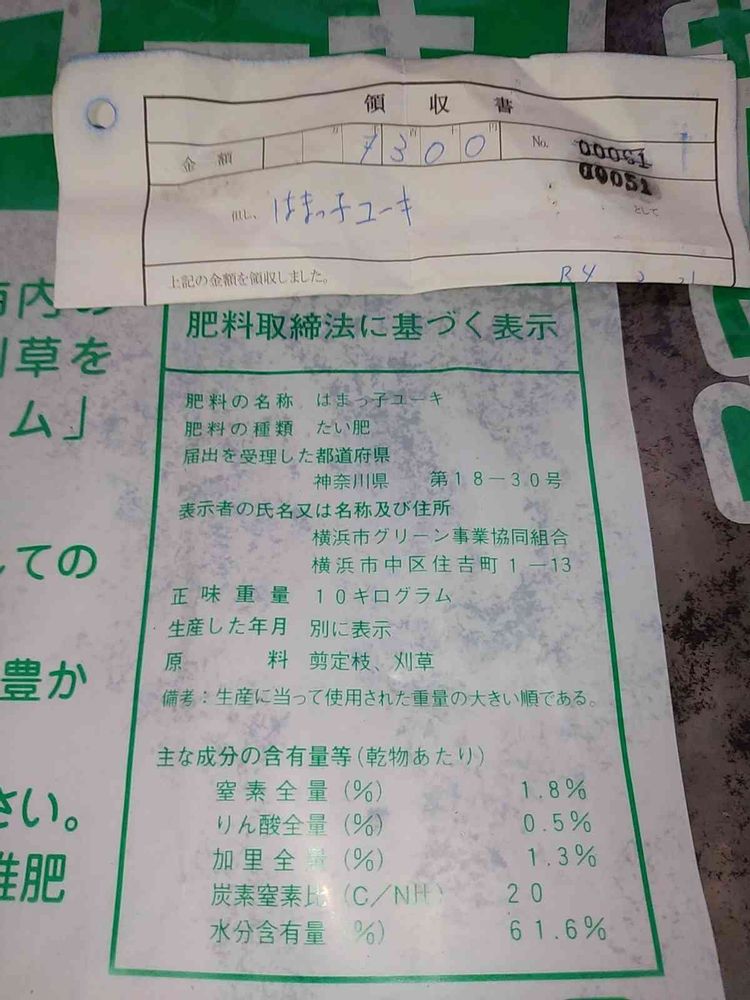 領収書
金額 万 千 百 十 円 7300 No. 00061
00051
但し、はまっ子ユーキ として
上記の金額を領収しました。 R4
肥料取締法に基づく表示
肥料の名称 はまっ子ユーキ
肥料の種類 たい肥
届出を受理した都道府県
神奈川県 第18-30号
表示者の氏名又は名称及び住所
横浜市グリーン事業協同組合
横浜市中区住吉町1-13
正味重量 10キログラム
生産した年月 別に表示
原料 剪定枝、刈草
備考:生産に当って使用された重量の大きい順である。
主な成分の含有量等(乾物あたり)
窒素全量(%) 1.8%
りん酸全量(%) 0.5%
加里全量(%) 1.3%
炭素窒素比(C/N比) 20
水分含有量 %) 61.6%
草を
ム」
ての
豊か
さい。
堆肥